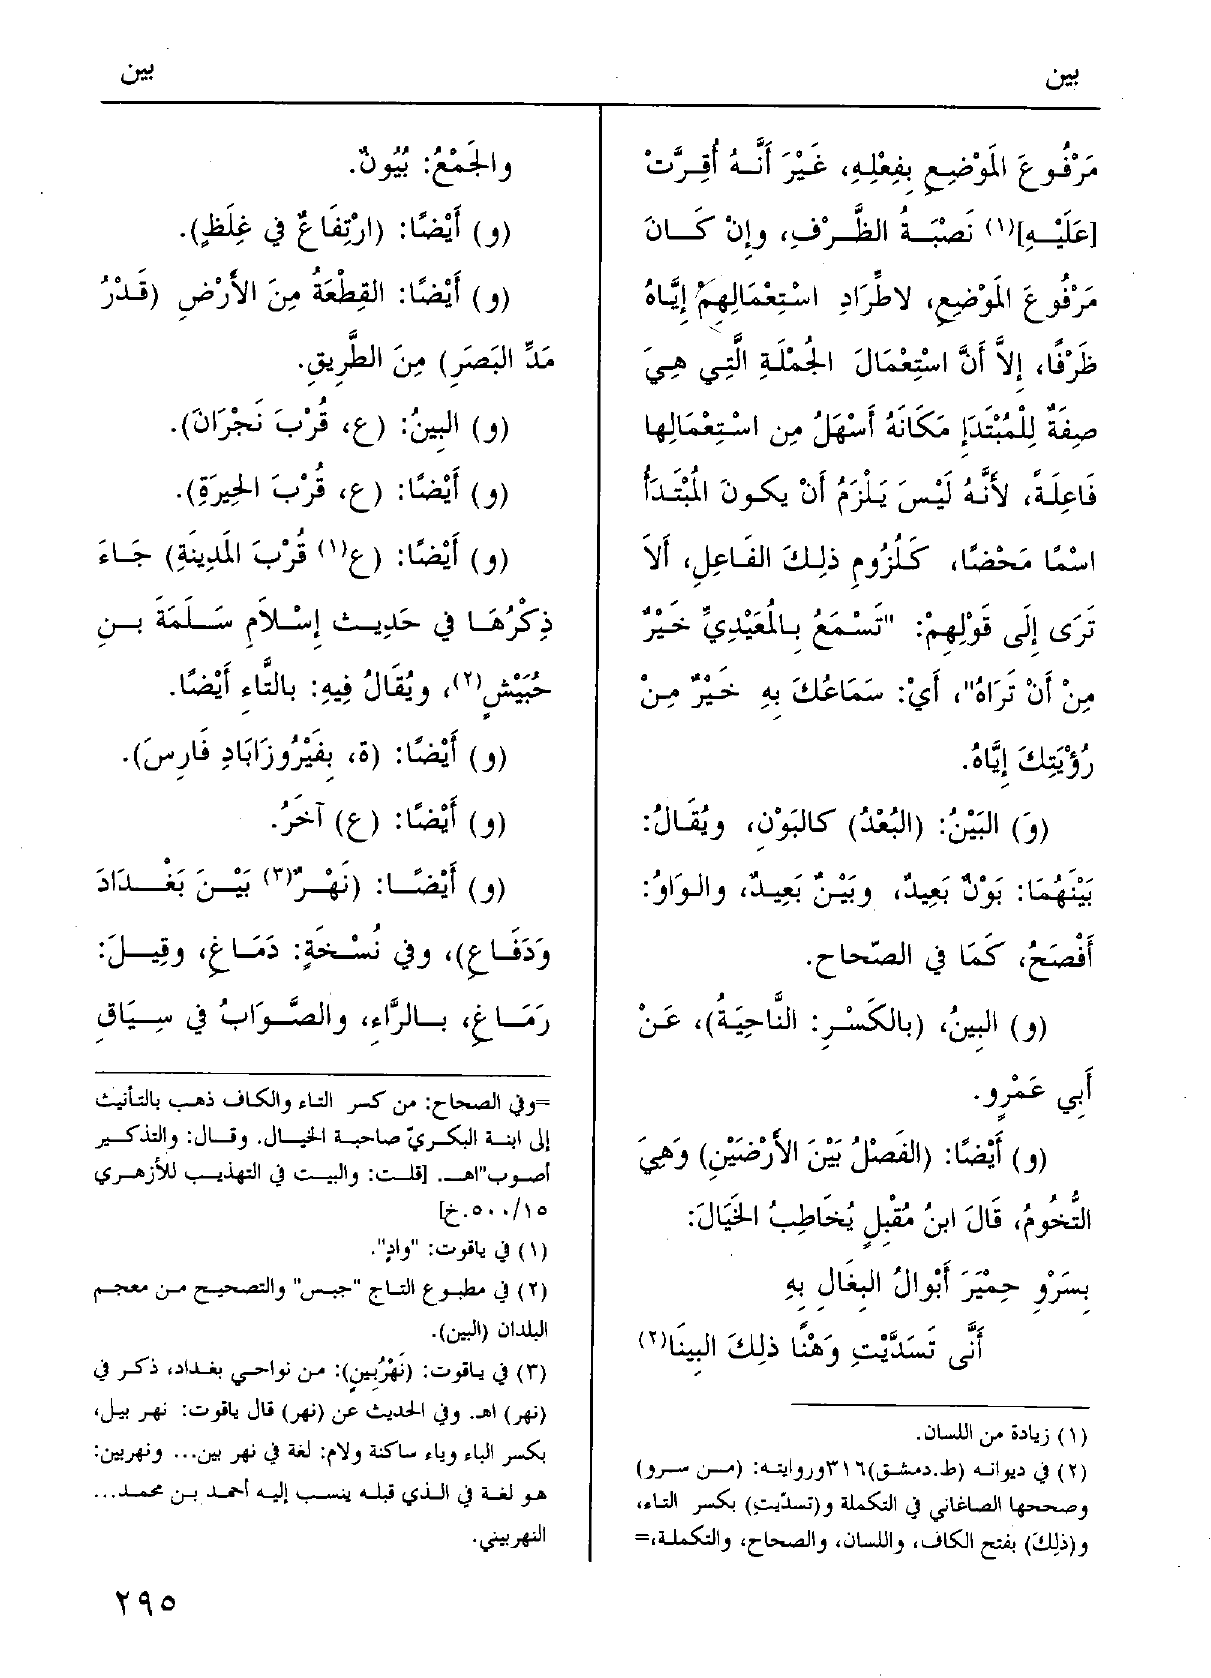 بين
بين
مَرْفُوعَ المَوْضِعِ بِفِعْلِهِ، غَيْرَ أَنَّهُ أُقِرَّتْ
[عَلَيْهِ](١) نَصْبَةُ الظَّرْفِ، وإنْ كَانَ
مَرْفُوعَ المَوْضِعِ، لاطِّرَادِ اسْتِعْمَالِهِمْ إيَّاهُ
ظَرْفًا، إلاَّ أَنَّ اسْتِعْمَالَ الجُمْلَةِ الَّتِي هِيَ
صِفَةٌ لِلْمُبْتَدَإِ مَكَانَهُ أَسْهَلُ مِن اسْتِعْمَالِها
فَاعِلَةً، لأنَّهُ لَيْسَ يَلْزَمُ أنْ يكونَ المُبْتَدَأُ
اسْمًا مَحْضًا، كَلُزُومِ ذلِكَ الفَاعِلِ، أَلاَ
تَرَى إلَى قَوْلِهِمْ: "تَسْمَعُ بِالمُعَيْدِيِّ خَيْرٌ
مِنْ أَنْ تَرَاهُ"، أَيْ: سَمَاعُكَ بِهِ خَيْرٌ مِنْ
رُؤْيَتِكَ إيَّاهُ.
(وَ) البَيْنُ: (البُعْدُ) كالبَوْنِ، ويُقَالُ:
بَيْنَهُمَا: بَوْنٌ بَعِيدٌ، وبَيْنٌ بَعِيدٌ، والوَاوُ:
أَفْصَحُ، كَمَا في الصّحاح.
(و) البِينُ، (بالكَسْرِ: النَّاحِيَةُ)، عَنْ
أَبِي عَمْرٍو.
(و) أَيْضًا: (الفَصْلُ بَيْنَ الأرْضَيْنِ) وَهِيَ
التُّخُومُ، قَالَ ابنُ مُقْبِلٍ يُخَاطِبُ الخَيَالَ:
بِسَرْوِ حِمْيَرَ أَبْوالُ البِغَالِ بِهِ
أَنَّى تَسَدَّيْتِ وَهْنًا ذلِكَ البِينَا(٢)
(١) زيادة من اللسان.
(٢) في ديوانه (ط.دمشق)٣١٦وروايته: (من سرو)
وصححها الصاغاني في التكملة و(تسدّيتِ) بكسر التاء،
و(ذلِكَ) بفتح الكاف، واللسان، والصحاح، والتكملة،=
والجَمْعُ: بُيُونٌ.
(و) أَيْضًا: (ارْتِفَاعٌ في غِلَظٍ).
(و) أَيْضًا: القِطْعَةُ مِنَ الأَرْضِ (قَدْرُ
مَدِّ البَصَرِ) مِنَ الطَّرِيقِ.
(و) البِينُ: (ع، قُرْبَ نَجْرَانَ).
(و) أَيْضًا: (ع، قُرْبَ الحِيرَةِ).
(و) أَيْضًا: (ع(١) قُرْبَ المَدِينَةِ) جَاءَ
ذِكْرُهَا في حَدِيث إِسْلاَمِ سَلَمَةَ بنِ
حُبَيْشٍ(٢)، ويُقَالُ فِيهِ: بالتَّاءِ أَيْضًا.
(و) أَيْضًا: (ة، بِفَيْرُوزَابَادِ فَارِسَ).
(و) أَيْضًا: (ع) آخَرُ.
(و) أَيْضًا: (نَهْرٌ(٣) بَيْنَ بَغْدَادَ
وَدَفَاعٍ)، وفي نُسْخَةٍ: دَمَاغٍ، وقِيلَ:
رَمَاغٍ، بالرَّاءِ، والصَّوَابُ في سِيَاقِ
=وفي الصحاح: من كسر التاء والكاف ذهب بالتأنيث
إلى ابنة البكريّ صاحبة الخيال. وقال: والتذكير
أصوب"اهـ. [قلت: والبيت في التهذيب للأزهري
١٥/٥٠٠.خ]
(١) في ياقوت: "وادٍ".
(٢) في مطبوع التاج "جبس" والتصحيح من معجم
البلدان (البين).
(٣) في ياقوت: (نَهْرُبِينٍ): من نواحي بغداد، ذكر في
(نهر) اهـ. وفي الحديث عن (نهر) قال ياقوت: نهر بيل،
بكسر الباء وياء ساكنة ولام: لغة في نهر بين... ونهربين:
هو لغة في الذي قبله ينسب إليه أحمد بن محمد...
النهربيني.
٢٩٥